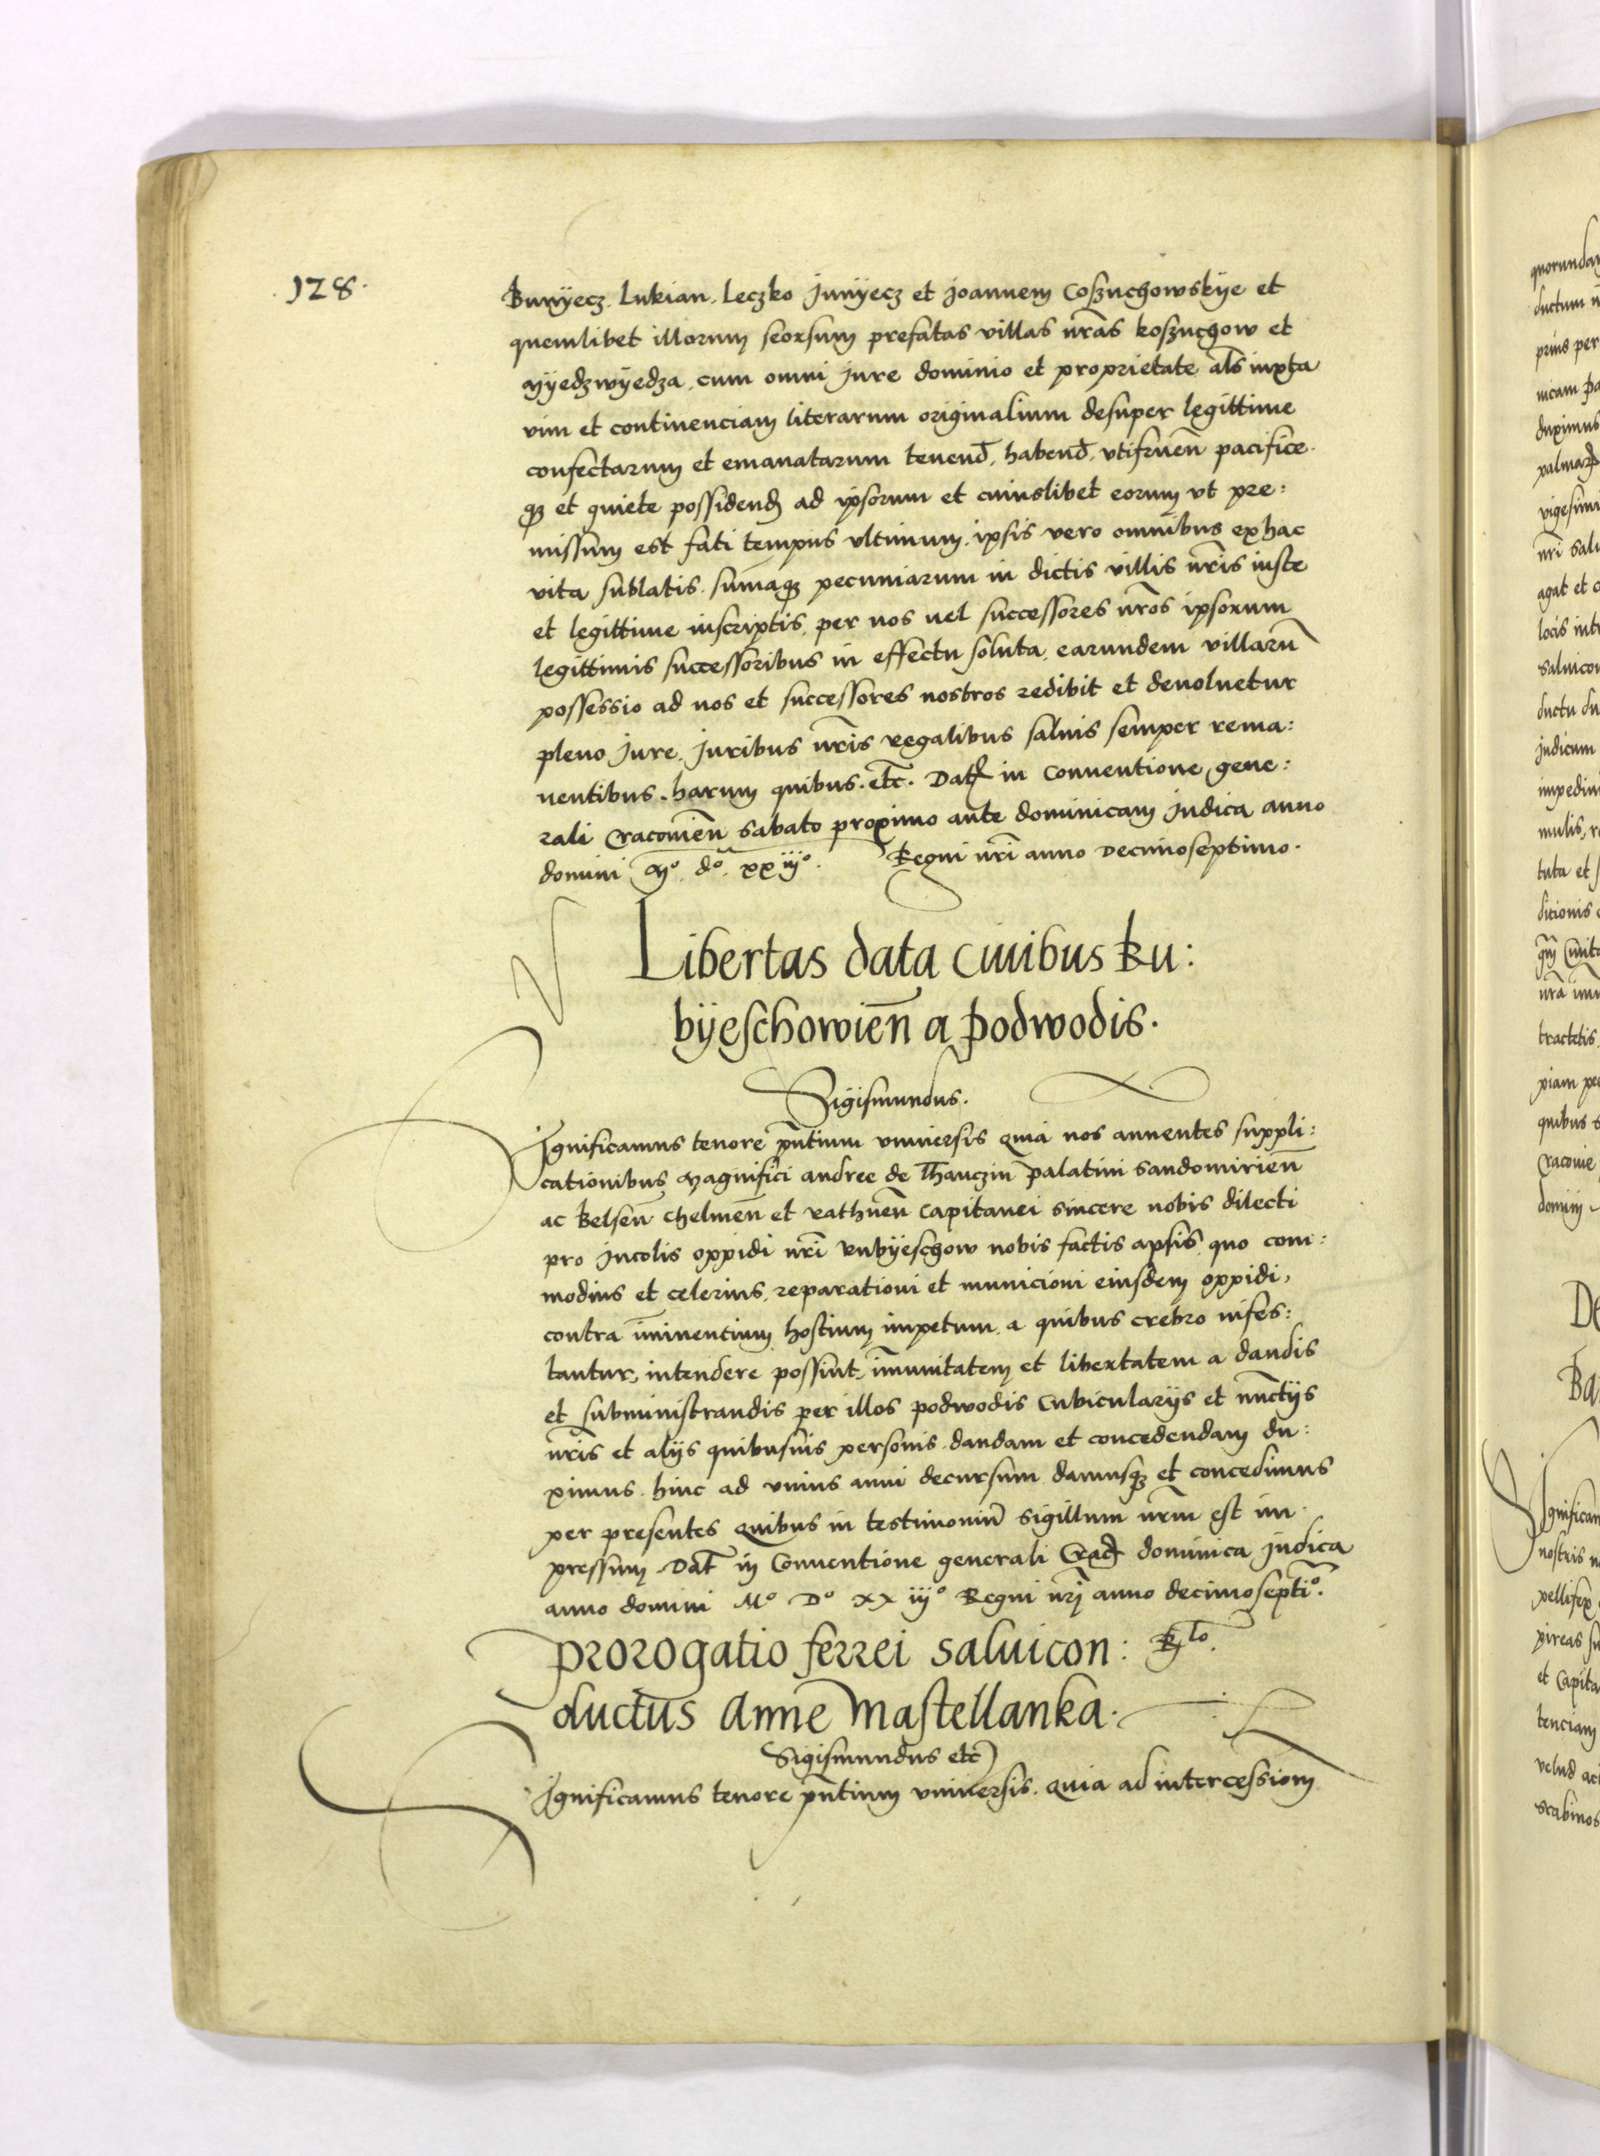 128.
Bunÿecz. Lukian. Leczko Junÿecz et Joannem Coßzuchowskÿe et
quemlibet illorum seorsum prefatas villas nrãs koßzuchow et
Nÿedzwÿedza, cum omni Jure dominio et proprietate als̃ iuxta
vim et continenciam literarum originalium desuper legittime
confectarum et emanatarum tenend̃, habend̃, vtifruen̄ pacifice
qȝ et quiete possidendȝ ad ipsorum et cuiuslibet eorum vt pre:
missum est fati tempus vltimum. ipsis vero omnibus ex hac
vita sublatis. sum̃aqȝ pecuniarum in dictis villis nr̃is iuste
et legittime inscriptis, per nos uel successores nr̃os ipsorum
legittimis successoribus in effectu soluta, earundem villarũ
possessio ad nos et successores nostros redibit et deuoluetur
pleno Jure. Juribus nr̃is regalibus saluis semper rema:
nentibus. harum quibus. etc̃. Datȝ in Conuentione gene:
rali Cracouien̄ sabato proximo ante dominicam Judica anno
domini Mº. dº. xx iijº. Regni nr̃i anno Decimoseptimo.
Libertas data Ciuibus Ru:
bÿeschowien̄ a podwodis.
Sigismundus.
Significamus tenore pñtium vniuersis quia nos annentes suppli:
cationibus Magnifici andree de Thanczin palatini Sandomirien̄
ac Belsen̄ Chelmen̄ et rathnen̄ Capitanei sincere nobis dilecti
pro Incolis oppidi nr̃i rubÿeschow nobis factis apsis, quo com:
modius et celerius, reparationi et municioni eiusdem oppidi,
contra im̃inentium hostium impetum, a quibus crebro infes:
tantur, intendere possint, im̃unitatem et libertatem a dandis
et subministrandis per illos podwodis Cubicularijs et nuñctijs
nr̃is et alijs quibusuis personis. dandam et concedendam du:
ximus. hinc ad vnius anni decursum damusqȝ et concedimus
per presentes Quibus in testimoniũ sigillum nr̃m est im
pressum. Dat̃ in Conuentione generali Cracȝ dominica Judica
anno domini Mº Dº xx iijº Regni nr̃j anno decimoseptĩº.
Prorogatio ferrei saluicon: R̃ˡᵒ.
ductus Anne Mastellanka.
Sigismundus etc̃
Significamus tenore pñtium vniuersis. Quia ad intercessionȝ